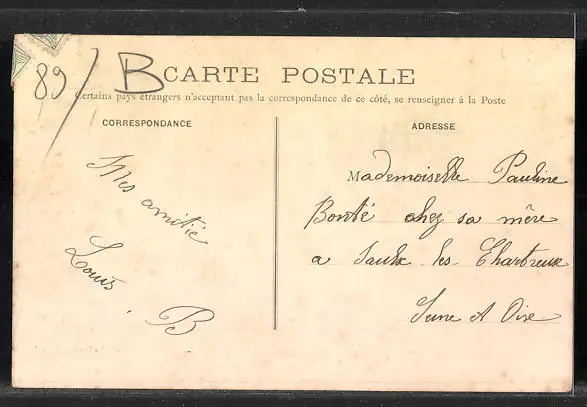 89/ B
CARTE POSTALE
Certains pays étrangers n'acceptant pas la correspondance de ce côté, se renseigner à la Poste
CORRESPONDANCE
Mes amitié
Louis. B
ADRESSE
Mademoiselle Pauline
Bonté chez sa mère
a Saulx les Chartreux
Seine et Oise